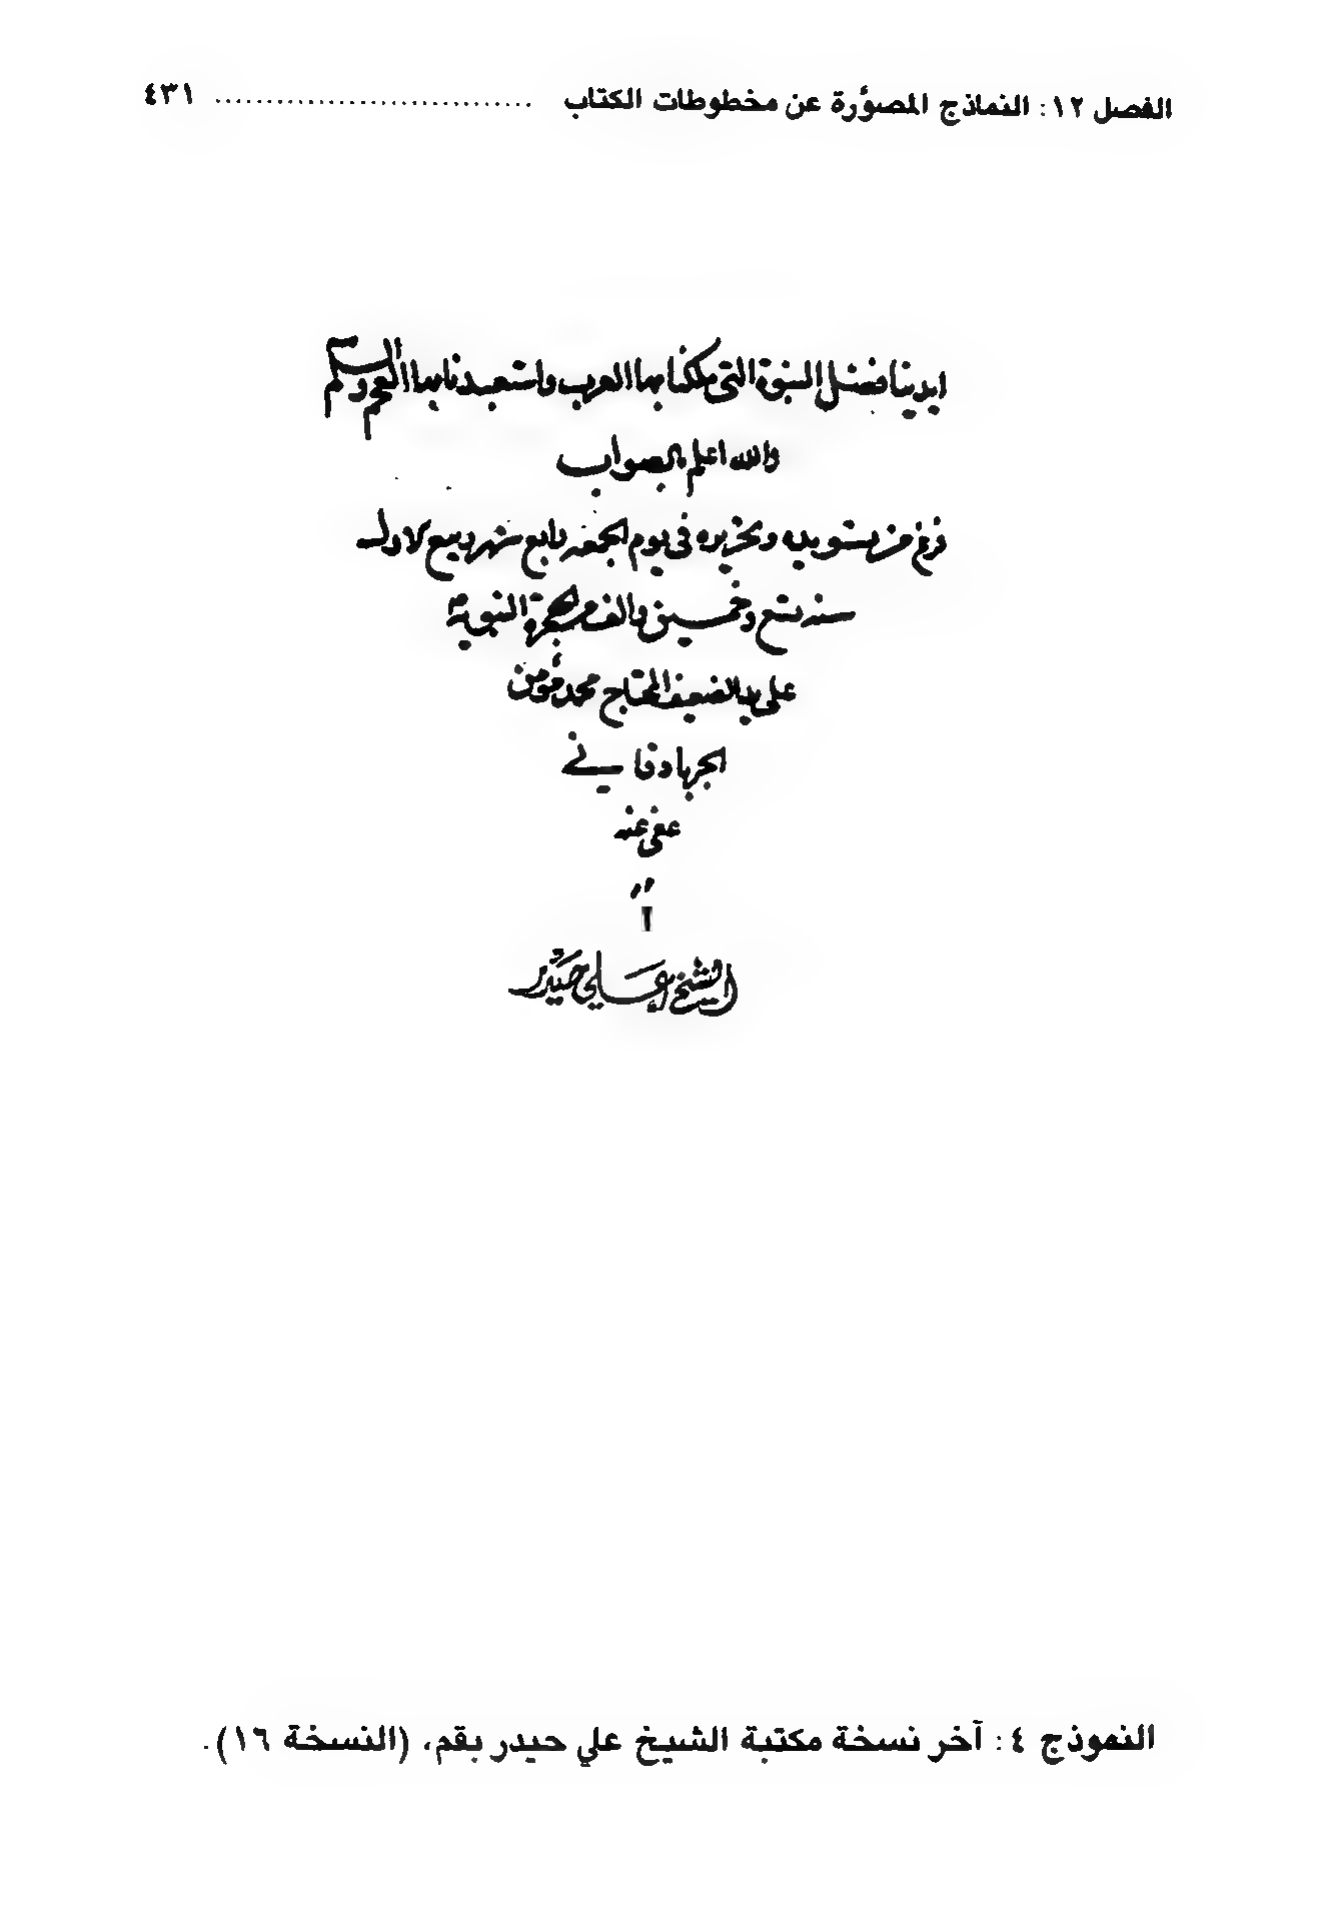 الفصل ١٢: النماذج المصوَّرة عن مخطوطات الكتاب .............................. ٤٣١
ايدينا فضل النبوة التى ملكنا بها العرب واستعبدنا بها العجم والسلم
والله اعلم بالصواب
فرغ من تسويده وتحريره فى يوم الجمعه رابع شهر ربيع الاول
سنه تسع وخمسين والف من الهجرة النبوية
على يد الضعيف المحتاج محمد مؤمن
الجربادقانے
عفى عنه
الشيخ علي حيدر
النموذج ٤: آخر نسخة مكتبة الشيخ علي حيدر بقم، (النسخة ١٦).